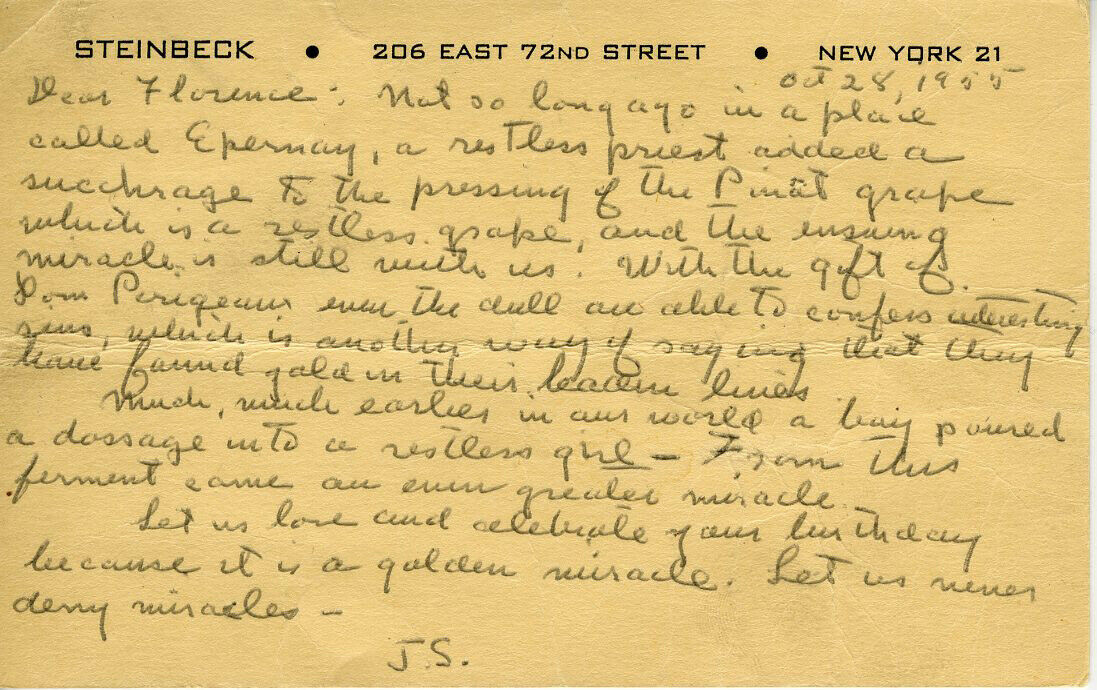 STEINBECK • 206 EAST 72ND STREET • NEW YORK 21
Oct 28, 1955
Dear Florence: Not so long ago in a place
called Epernay, a restless priest added a
succhrage to the pressing of the Pinot grape
which is a restless grape, and the ensuing
miracle is still with us. With the gift of
Dom Perigeaun even the dull are able to confess interesting
sins, which is another way of saying that they
have found gold in their leaden lives
Much, much earlier in our world a boy poured
a dossage into a restless girl — From this
ferment came an even greater miracle.
Let us love and celebrate your birthday
because it is a golden miracle. Let us never
deny miracles –
J.S.